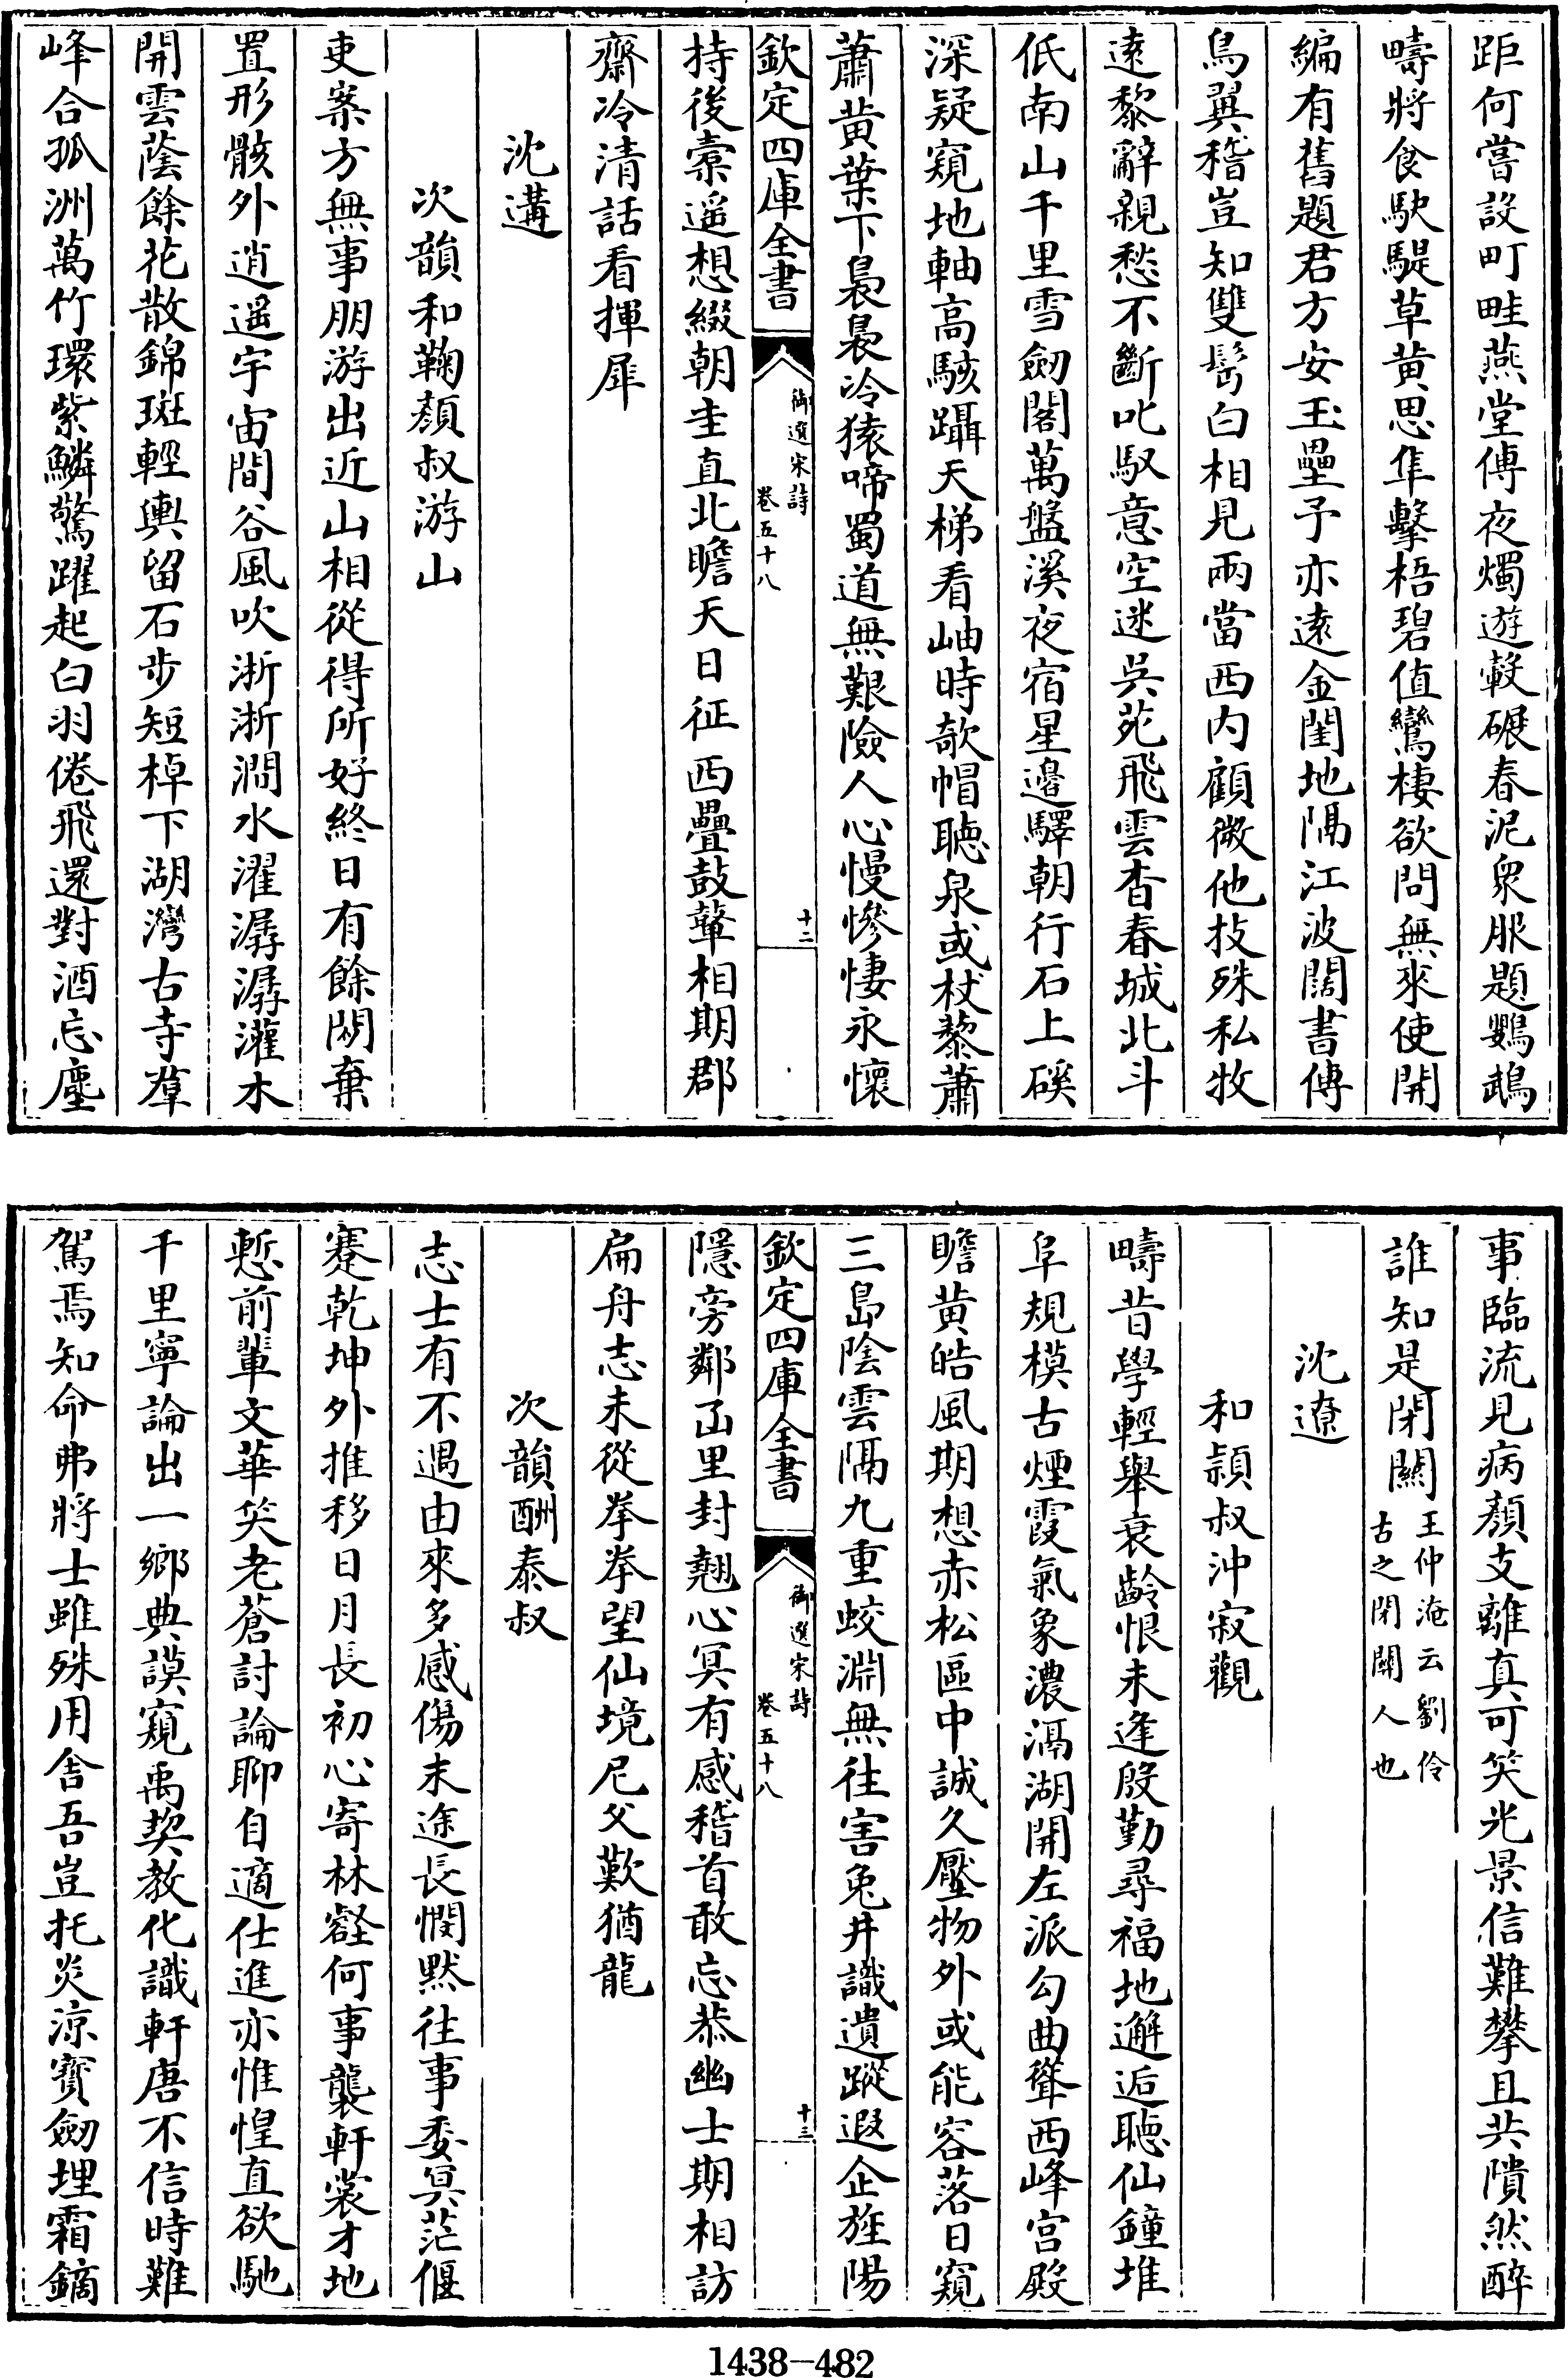 距何嘗設町畦燕堂傅夜燭遊轂碾春泥衆服題鸚鵡
疇將食駃騠草黄思隼擊梧碧值鸞棲欲問無來使開
編有舊題君方安玉壘予亦遠金閨地隔江波闊書傅
鳥翼稽豈知雙髩白相見兩當西内顧微他技殊私牧
遠黎辭親愁不斷叱馭意空迷吳苑飛雲杳春城北斗
低南山千里雪劒閣萬盤溪夜宿星邊驛朝行石上磎
深疑窺地軸高駭躡天梯看岫時欹帽聴泉或杖藜蕭
蕭黄葉下裊裊冷猿啼蜀道無艱險人心慢慘悽永懐
欽定四庫全書
御選宋詩
卷五十八
十二
持後橐遥想綴朝圭直北瞻天日征西疊鼓鼙相期郡
齋冷清話看揮犀
沈遘
次韻和鞠顔叔游山
吏案方無事朋游出近山相從得所好終日有餘閑棄
置形骸外逍遥宇宙間谷風吹淅淅澗水濯潺潺灌木
開雲蔭餘花散錦斑輕輿留石步短棹下湖灣古寺羣
峰合孤洲萬竹環紫鱗驚躍起白羽倦飛還對酒忘塵
事臨流見病顔支離真可笑光景信難攀且共隤然醉
誰知是閉關王仲淹云劉伶
古之閉關人也
沈遼
和頴叔沖寂觀
疇昔學輕舉衰齡恨未逢殷勤尋福地邂逅聴仙鐘堆
阜規模古煙霞氣象濃滆湖開左派勾曲聳西峰宫殿
瞻黄皓風期想赤松區中誠久壓物外或能容落日窺
三島陰雲隔九重蛟淵無往害兔井識遺蹤遐企旌陽
欽定四庫全書
御選宋詩
卷五十八
十三
隱旁鄰函里封翹心冥有感稽首敢忘恭幽士期相訪
扁舟志未從拳拳望仙境尼父歎猶龍
次韻酬泰叔
志士有不遇由來多感傷末途長憫黙往事委冥茫偃
蹇乾坤外推移日月長初心寄林壑何事襲軒裳才地
慙前輩文華笑老蒼討論聊自適仕進亦惟惶直欲馳
千里寧論出一鄉典謨窺禹契教化識軒唐不信時難
駕焉知命弗將士雖殊用舎吾豈托炎涼寳劒埋霜鏑
1438—482